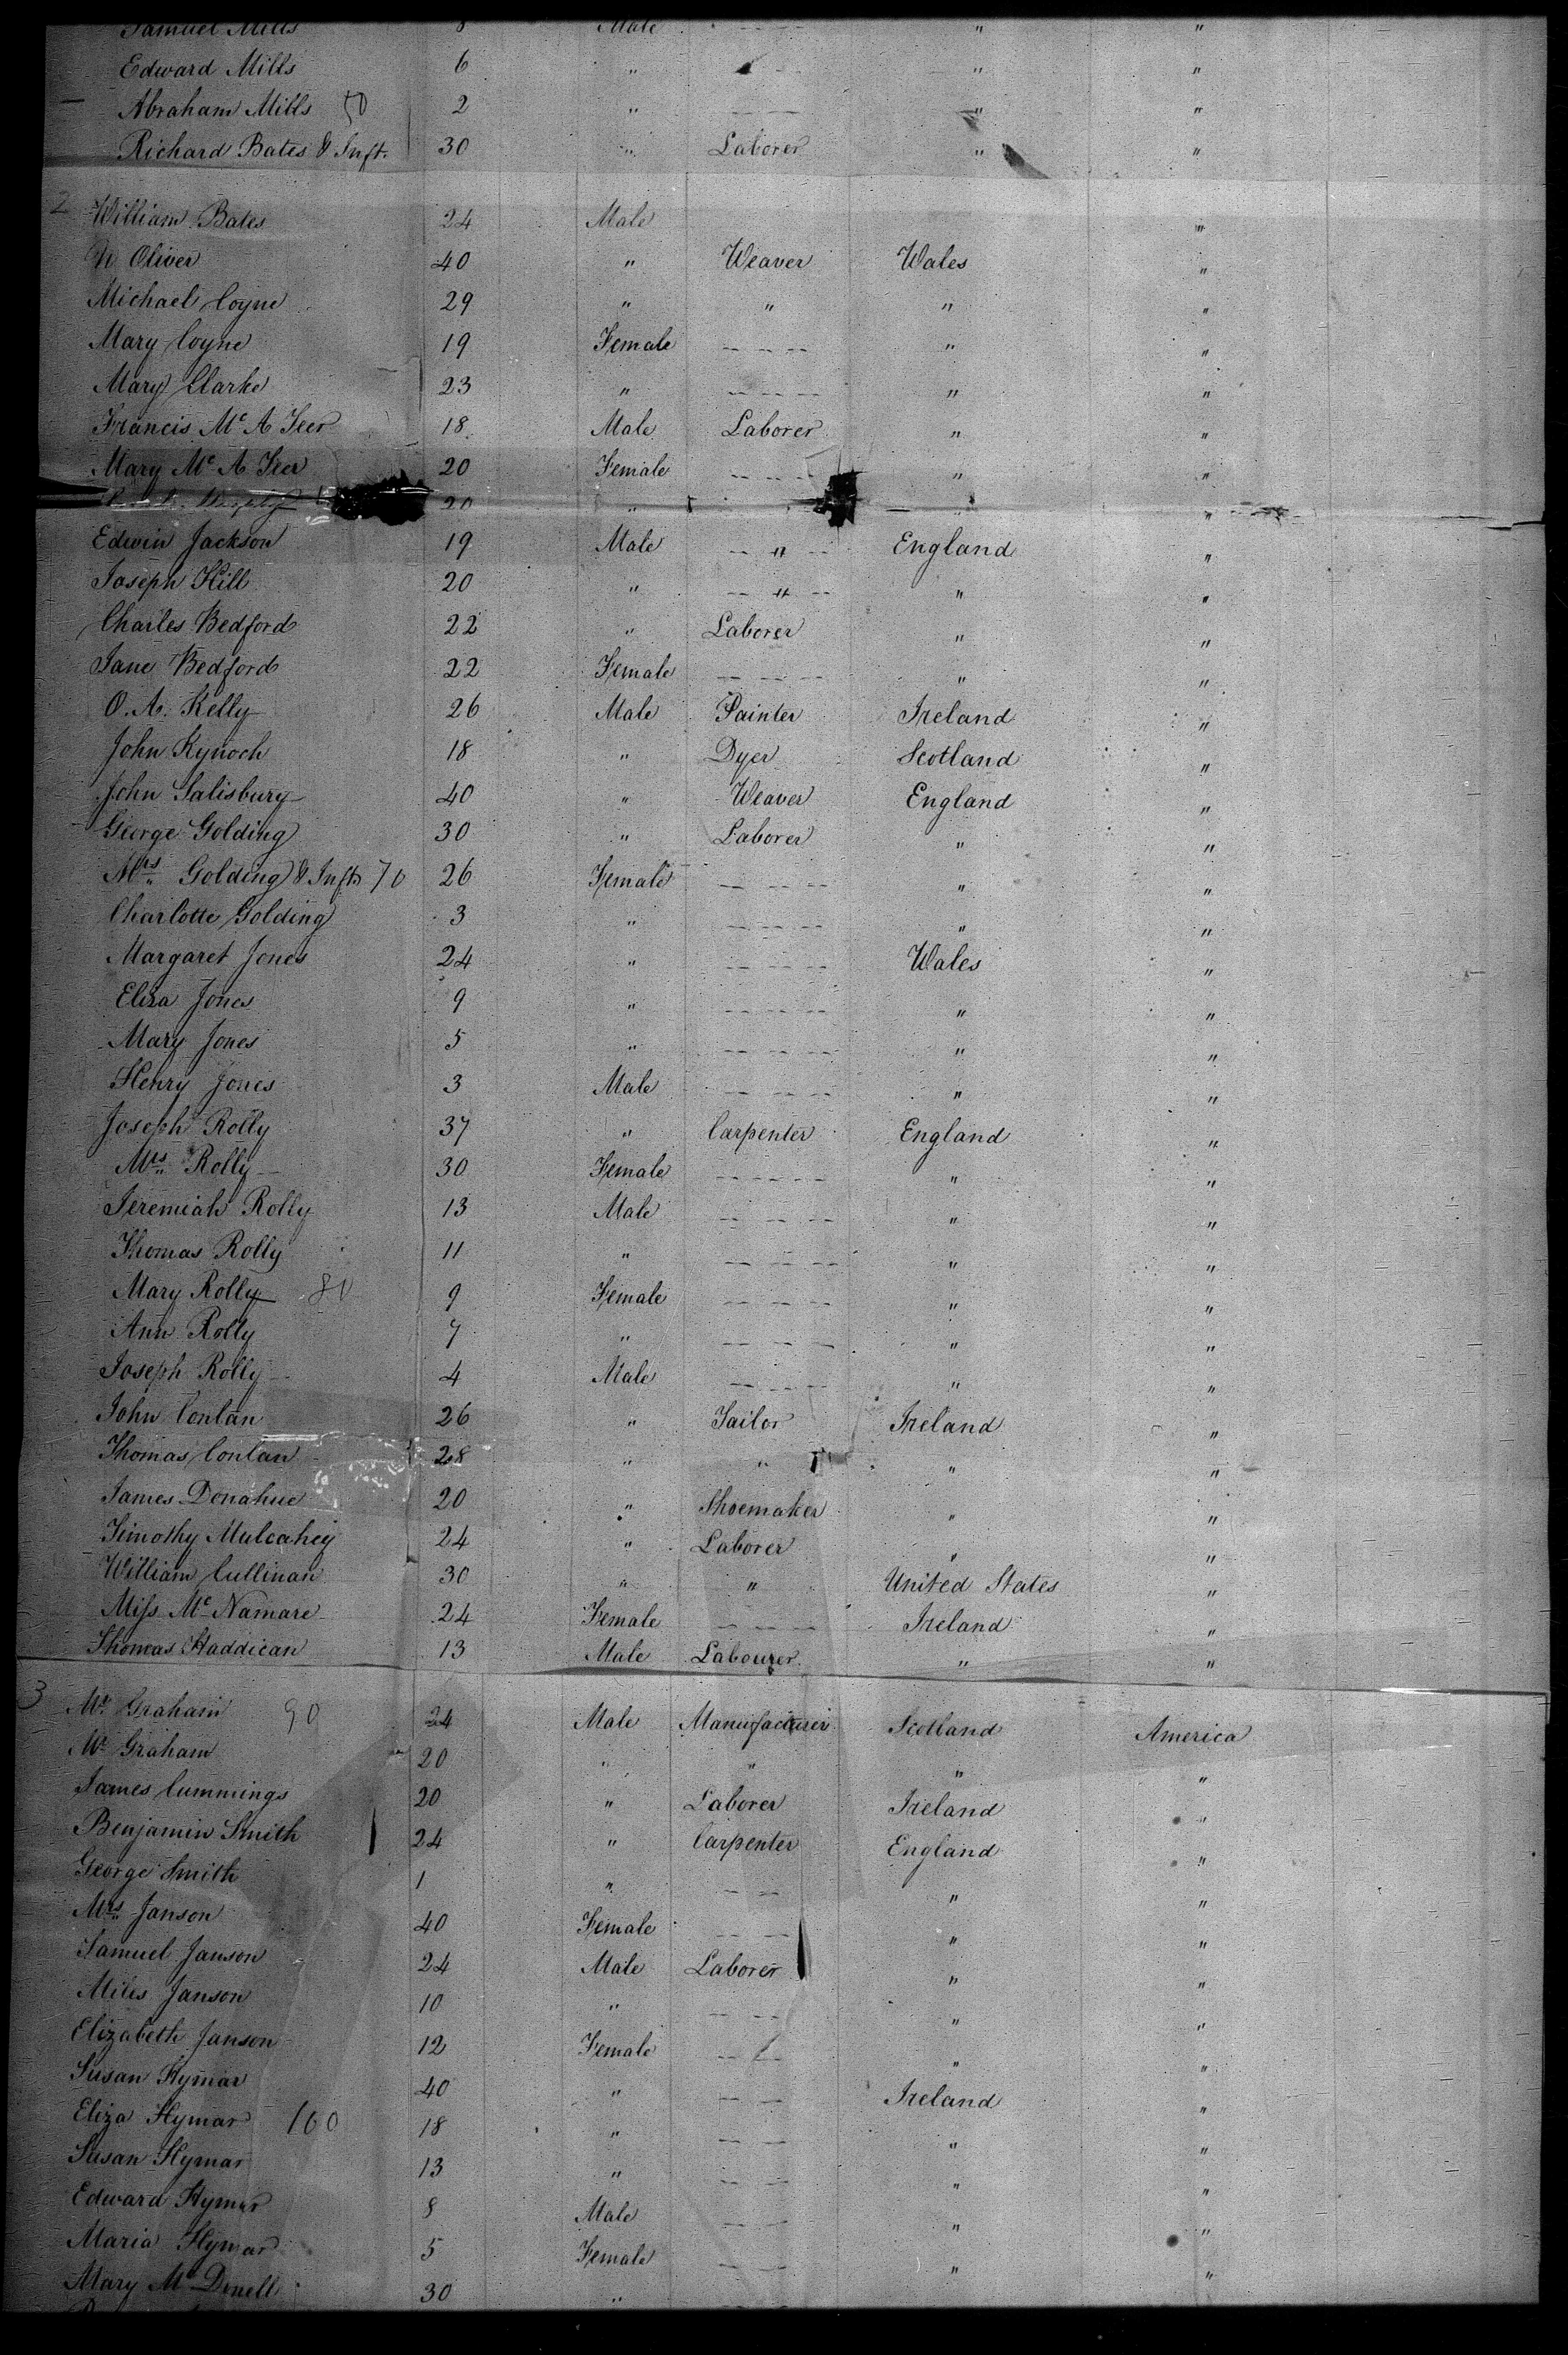 Samuel Mills 8 Male — — — " "
Edward Mills 6 " — — " "
Abraham Mills 50 2 " — — — " "
Richard Bates & Inft. 30 " Laborer " "
2 William Bates 24 Male "
Oliver 40 " Weaver Wales "
Michael Coyne 29 " " " "
Mary Coyne 19 Female — — — " "
Mary Clarke 23 " — — — " "
Francis Mc A Teer 18 Male Laborer " "
Mary Mc A Teer 20 Female — — — " "
20 " "
Edwin Jackson 19 Male — " — England "
Joseph Hill 20 " — " — " "
Charles Bedford 22 " Laborer " "
Jane Bedford 22 Female — — — " "
O. A. Kelly 26 Male Painter Ireland "
John Kynoch 18 " Dyer Scotland "
John Salisbury 40 " Weaver England "
George Golding 30 " Laborer " "
Mrs. Golding & Inft 70 26 Female — — — " "
Charlotte Golding 3 " — — — " "
Margaret Jones 24 " — — — Wales "
Eliza Jones 9 " — — — " "
Mary Jones 5 " — — — " "
Henry Jones 3 Male — — — " "
Joseph Rolly 37 " Carpenter England "
Mrs. Rolly 30 Female — — — " "
Jeremiah Rolly 13 Male — — — " "
Thomas Rolly 11 " — — — " "
Mary Rolly 80 9 Female — — — " "
Ann Rolly 7 " — — — " "
Joseph Rolly 4 Male — — — " "
John Conlan 26 " Tailor Ireland "
Thomas Conlan 28 " " " "
James Donahue 20 " Shoemaker " "
Timothy Mulcahey 24 " Laborer " "
William Cullinan 30 " " United States "
Miss Mc Namare 24 Female — — — Ireland "
Thomas Haddican 13 Male Labourer " "
3 Mr. Graham 90 24 Male Manufacturer Scotland America
Mr. Graham 20 " " " "
James Cummings 20 " Laborer Ireland "
Benjamin Smith 24 " Carpenter England "
George Smith 1 " — — " "
Mrs. Janson 40 Female — — " "
Samuel Janson 24 Male Laborer " "
Miles Janson 10 " — — " "
Elizabeth Janson 12 Female — — " "
Susan Hymar 40 " — — Ireland "
Eliza Hymar 100 18 " — — " "
Susan Hymar 13 " — — " "
Edward Hymar 8 Male — — " "
Maria Hymar 5 Female — — " "
Mary Mc Donell 30 "